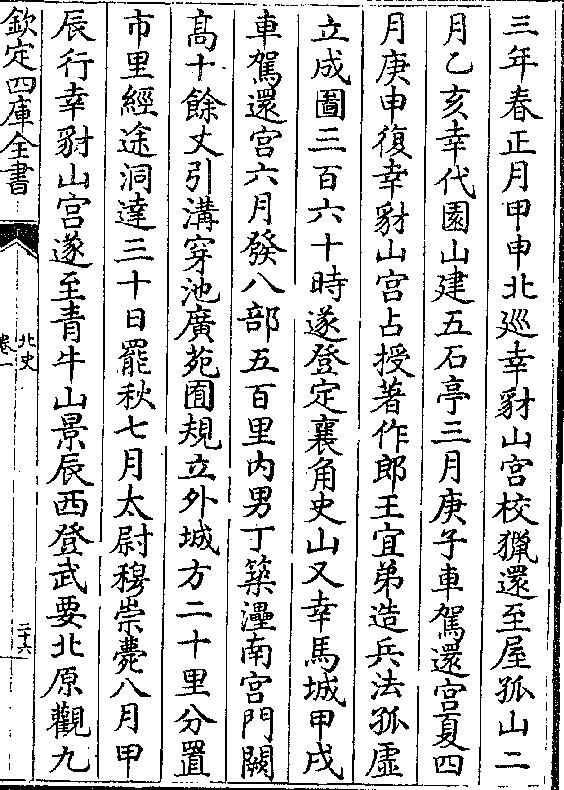 三年春正月甲申北廵幸豺山宫校獵還至屋孤山二
月乙亥幸代園山建五石亭三月庚子車駕還宫夏四
月庚申復幸豺山宫占授著作郎王宜弟造兵法孤虚
立成圖三百六十時遂登定襄角史山又幸馬城甲戌
車駕還宫六月發八部五百里内男丁築㶟南宫門闕
髙十餘丈引溝穿池廣苑囿規立外城方二十里分置
市里經途洞達三十日罷秋七月太尉穆崇薨八月甲
辰行幸豺山宫遂至青牛山景辰西登武要北原觀九
欽定四庫全書
北史
卷一
二十六